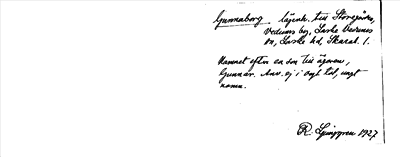 Gunnaborg lägenh. till Storegården,
Vedums by, Laske Vedums
sn, Laske hd, Skarab. l.
Namnet efter en son till ägaren,
Gunnar. Anv. ej i orten, ungt
namn.
R. Ljunggren 1927